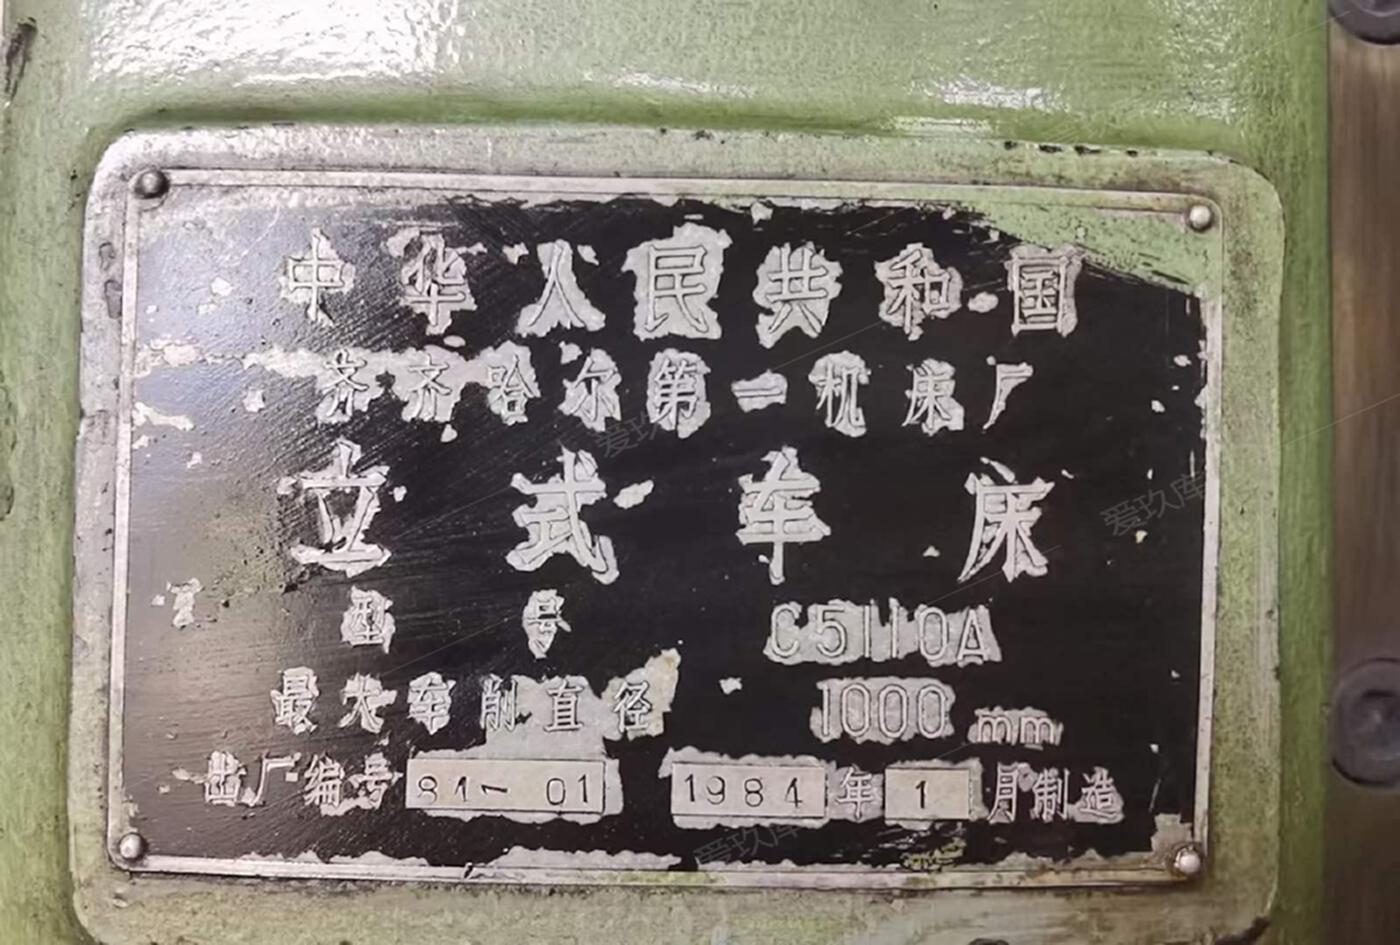 中华人民共和国
齐齐哈尔第一机床厂
立式车床
型号 C5110A
最大车削直径 1000 mm
出厂编号 84-01 1984年1月制造
爱玖库
爱玖库
爱玖库